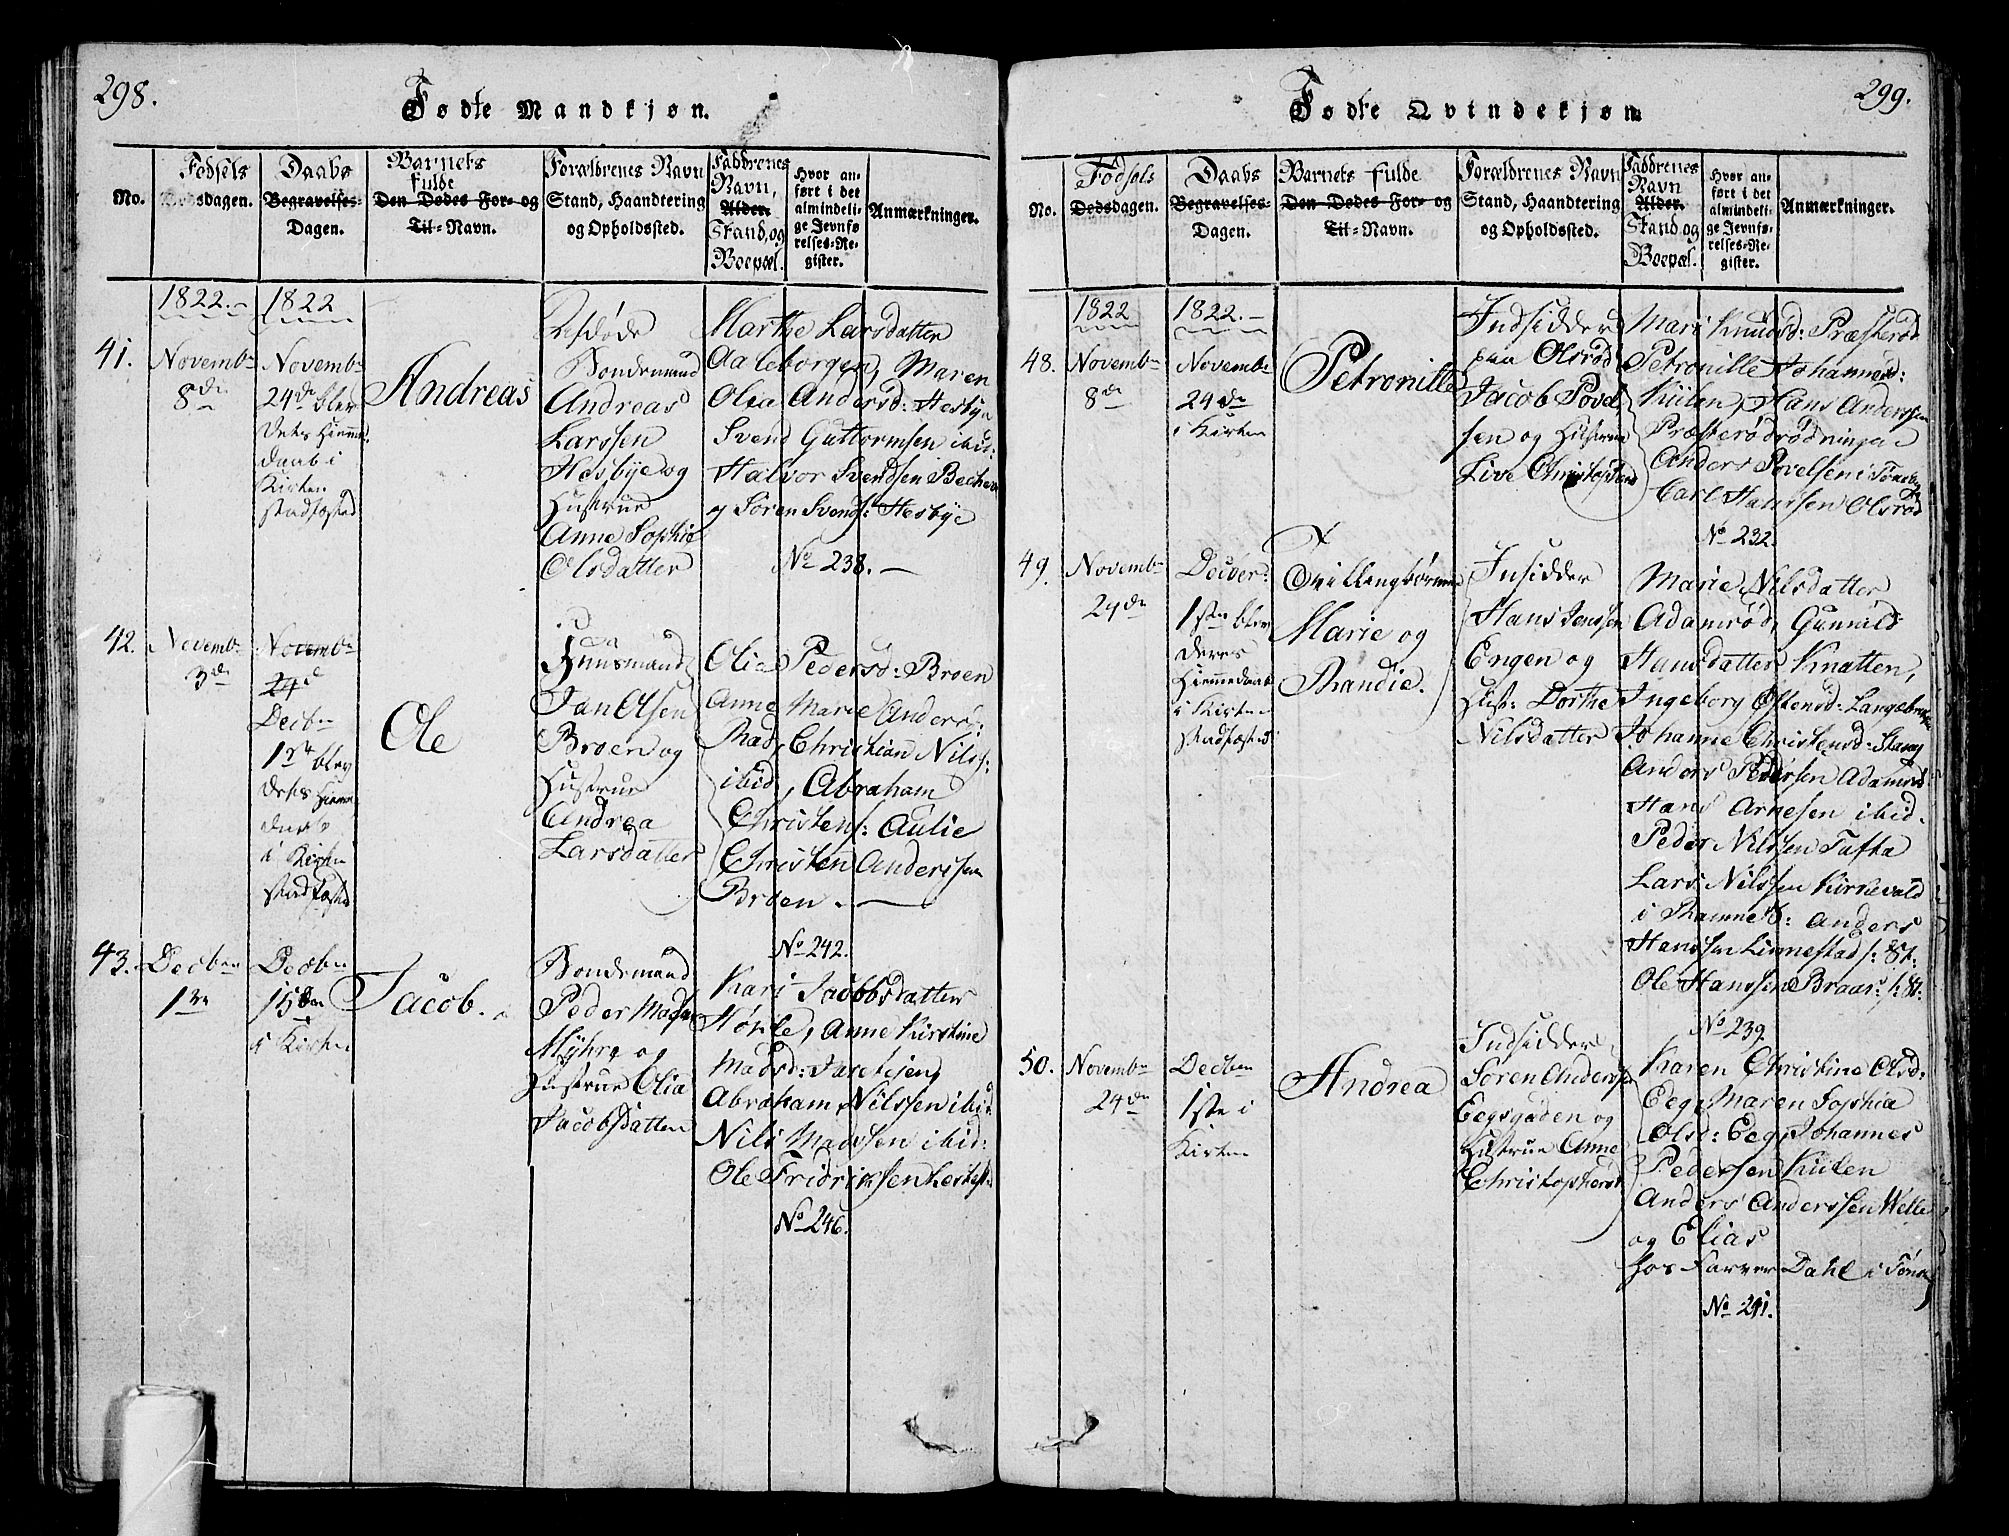 298.
Fødte Mandkjøn.
No.
Fødsels
Dødsdagen.
Daabs
Begravelses-
Dagen.
Barnets
fulde
Den Dødes For- og
Til-Navn.
Forældrenes Navn
Stand, Haandtering
og Opholdssted.
Faddrenes
Navn,
Alder.
Stand, og
Boepæl.
Hvor an-
ført i det
almindeli-
ge Jevnfø-
relses-Re-
gister.
Anmærkninger.
1822.-
1822
41.
Novembr
8de
Novembr
24de blev
dets Hiemme-
daab i
Kirken
stadfæsted
Andreas
Afdøde
Bondemand
Andreas
Larssen
Hesbye og
Hustrue
Anne Sophie
Olsdatter
Marthe Larsdatter
Aaleborgen, Maren
Olia Andersd: Hesbye
Svend Guttormsen ibid:
Halvor Svendsen
og Sören Svends: Hesbye
No 238. —
42.
Novembr
3de
Novembr
24d
Decbr
1ste blev
dets Hiemme
daab
i Kirken
stadfæsted
Ole
Huusmand
Jan Olsen
Broen og
Hustrue
Andrea
Larsdatter
Olia Pedersd: Broen
Anne Marie Anders:
Rad, Christian Nilss:
ibid, Abraham
Christens: Aulie
Christen Anderssen
Broen. —
No 242.
43.
Decbr
1ste
Decbr
15de
i Kirken
Jacob.
Bondemand
Peder Madsen
Myhre og
Hustrue Olia
Jacobsdatter
Kari Jacobsdatter
Hörle, Anne Kirstine
Madsd: Jareteien,
Abraham Nilssen ibid
Nils Madsen ibid:
Ole Fridrikssen
No 246.
299.
Fødte Qvindekjøn
No.
Fødsels
Dødsdagen.
Daabs
Begravelses-
Dagen.
Barnets fulde
Den Dødes For- og
Til-Navn.
Forældrenes Navn
Stand, Haandtering
og Opholdssted.
Faddrenes
Navn
Alder.
Stand og
Boepæl.
Hvor an-
ført i det
almindeli-
ge Jevnfø-
relses-Re-
gister.
Anmærkninger.
1822
1822.-
48.
Novembr
8de
Novembr
24de
i Kirken
Petronille
Indsidder
paa Olsröd
Jacob Povel
sen og Hustrue
Live Christophersd
Mari Knudsd: Præsteröd
Petronille Johannesd:
Kiilen, Hans Anderssen
Præsteröd
Anders Povelsen i Tönsberg
Carl Hanssen Olsröd
No 232.
49.
Novembr
24de
Decbr:
1ste blev
deres
Hiemmedaab
i Kirken
stadfæsted
Tvillingbörnene
Marie og
Randie.
Insidder
Hans Jenssen
Engen og
Hust: Dorthe
Nilsdatter
Marie Nilsdatter
Adamröd, Gunnild
Hansdatter Knatten,
Ingeborg Östensd:
Johanne Christensd:
Anders Pedersen Adamröd
Hans Arnesen ibid.
Peder Nilssen Tufta
Lars Nilssen Kirkevold
i Ramnes: Anders
Hanssen Linnestad
Ole Hanssen Braar
No 239.
50.
Novembr
24de
Decbr
1ste i
Kirken
Andrea
Indsidder
Sören Anderssen
Eegsgaden og
Hustrue Anne
Christophersd
Karen Christine Olsd:
Eeg, Maren Sophia
Olsd: Eeg, Johannes
Pedersen Kiilen
Anders Anderssen Welle
og Elias
hos Farver Dahl i Tönsb
No 241.